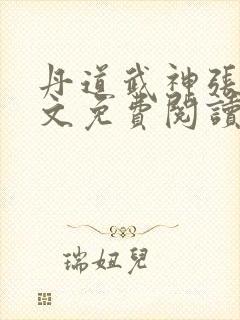 丹道武神張
文免費閱讀
瑞妞兒